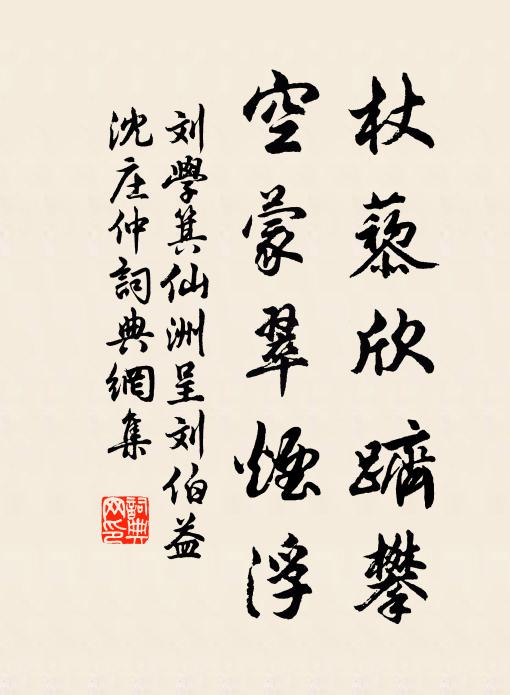 杖藜欣躋攀
空蒙翠煙浮
刘學箕仙洲呈刘伯益
沈庄仲詞典網集
詞典網印